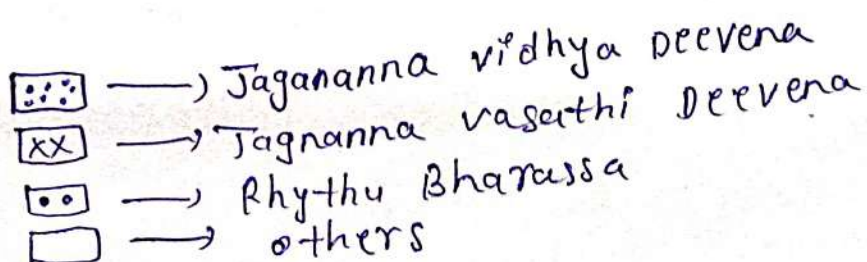 → Jagananna vidhya Deevena
xx → Jagnanna vasathi Deevena
→ Rhythu Bharassa
→ others